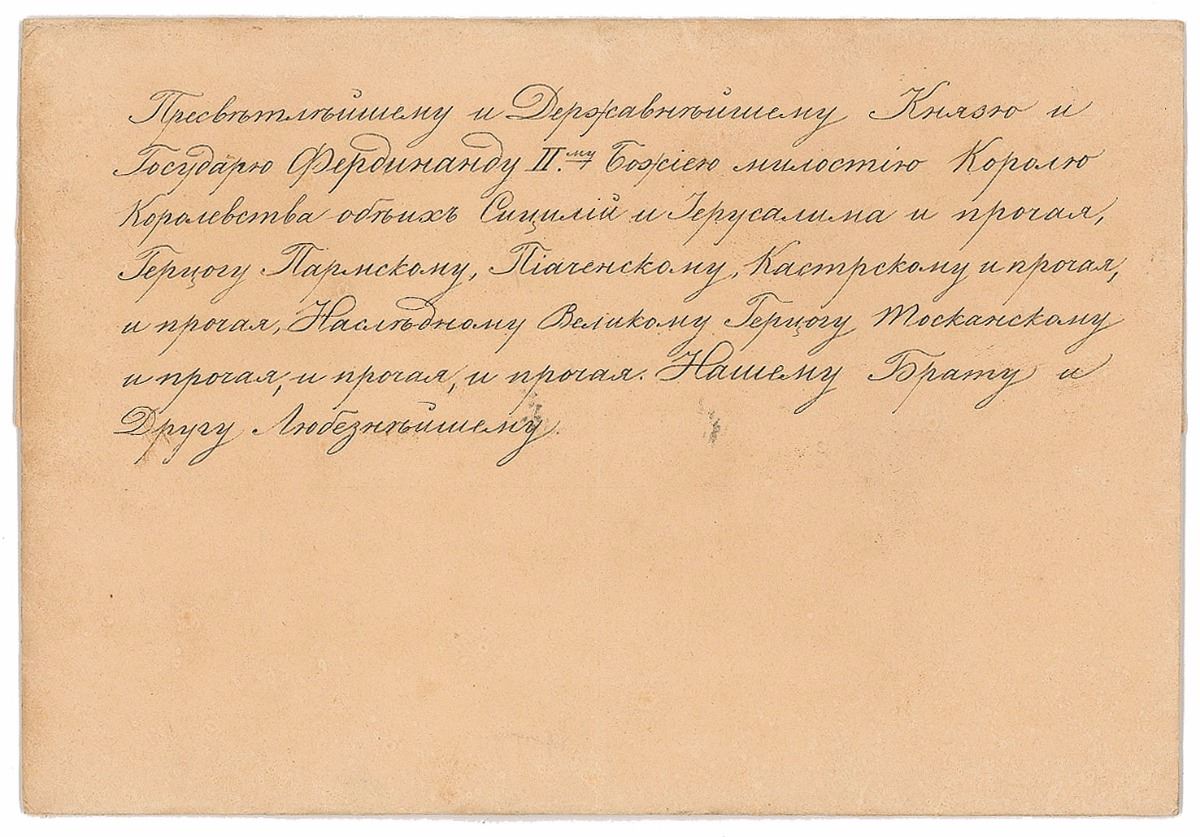 Пресвѣтлѣйшему и Державнѣйшему Князю и
Государю Фердинанду II.му Божіею милостію Королю
Королевства обѣихъ Сицилій и Іерусалима и прочая,
Герцогу Пармскому, Піаченскому, Кастрскому и прочая,
и прочая, Наслѣдному Великому Герцогу Тосканскому
и прочая, и прочая, и прочая. Нашему Брату и
Другу Любезнѣйшему.